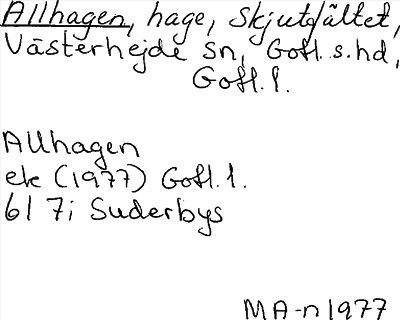 Allhagen, hage, skjutfältet,
Västerhejde sn, Gotl. s. hd,
Gotl. l.
Allhagen
ek (1977) Gotl. l.
6I 7i Suderbys
MA-n 1977